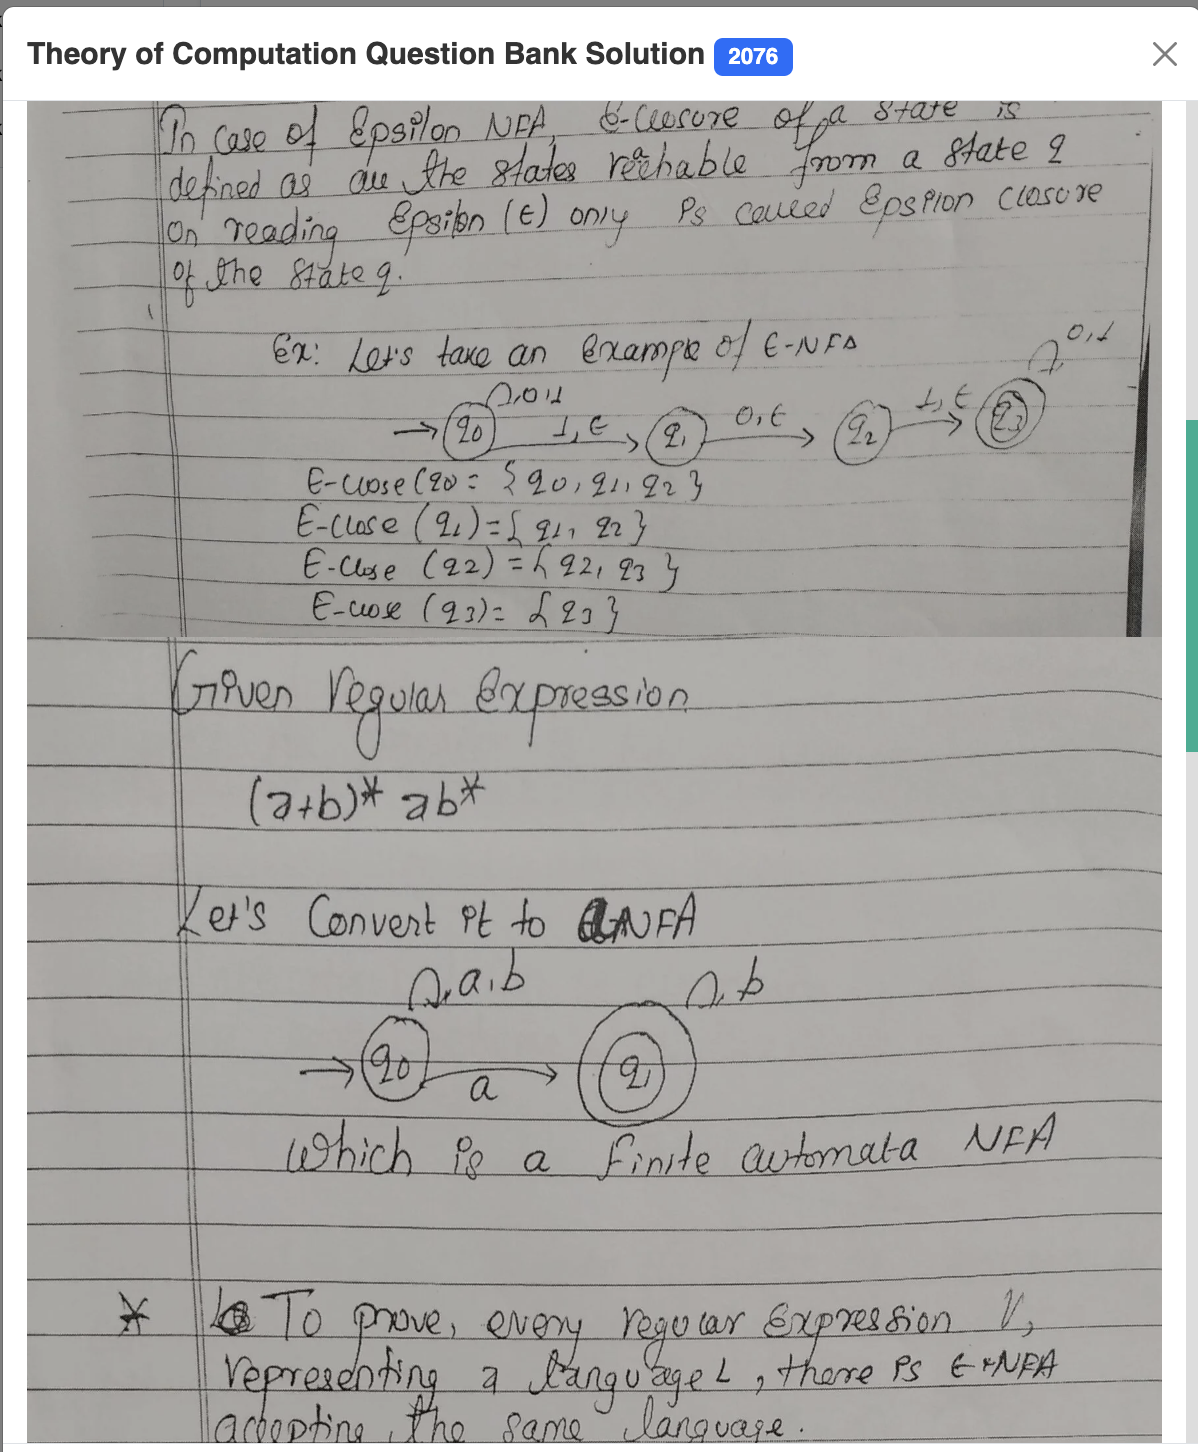 Theory of Computation Question Bank Solution 2076
In case of Epsilon NFA, E-closure of a state is
defined as all the states reachable from a state q
on reading Epsilon (ϵ) only is called Epsilon closure
of the state q.
Ex: Let's take an Example of E-NFA
0,1
0,1
→ q0 1,ϵ q1 0,ϵ q2 1,ϵ q3
E-close (q0 = {q0, q1, q2}
E-close (q1) = {q1, q2}
E-close (q2) = {q2, q3}
E-close (q3) = {q3}
Given regular Expression
(a+b)* ab*
Let's Convert it to NFA
a,b
b
→ q0 a q1
which is a finite automata NFA
* To prove, every regular Expression r,
representing a language L, there is ϵ-NFA
accepting the same language.